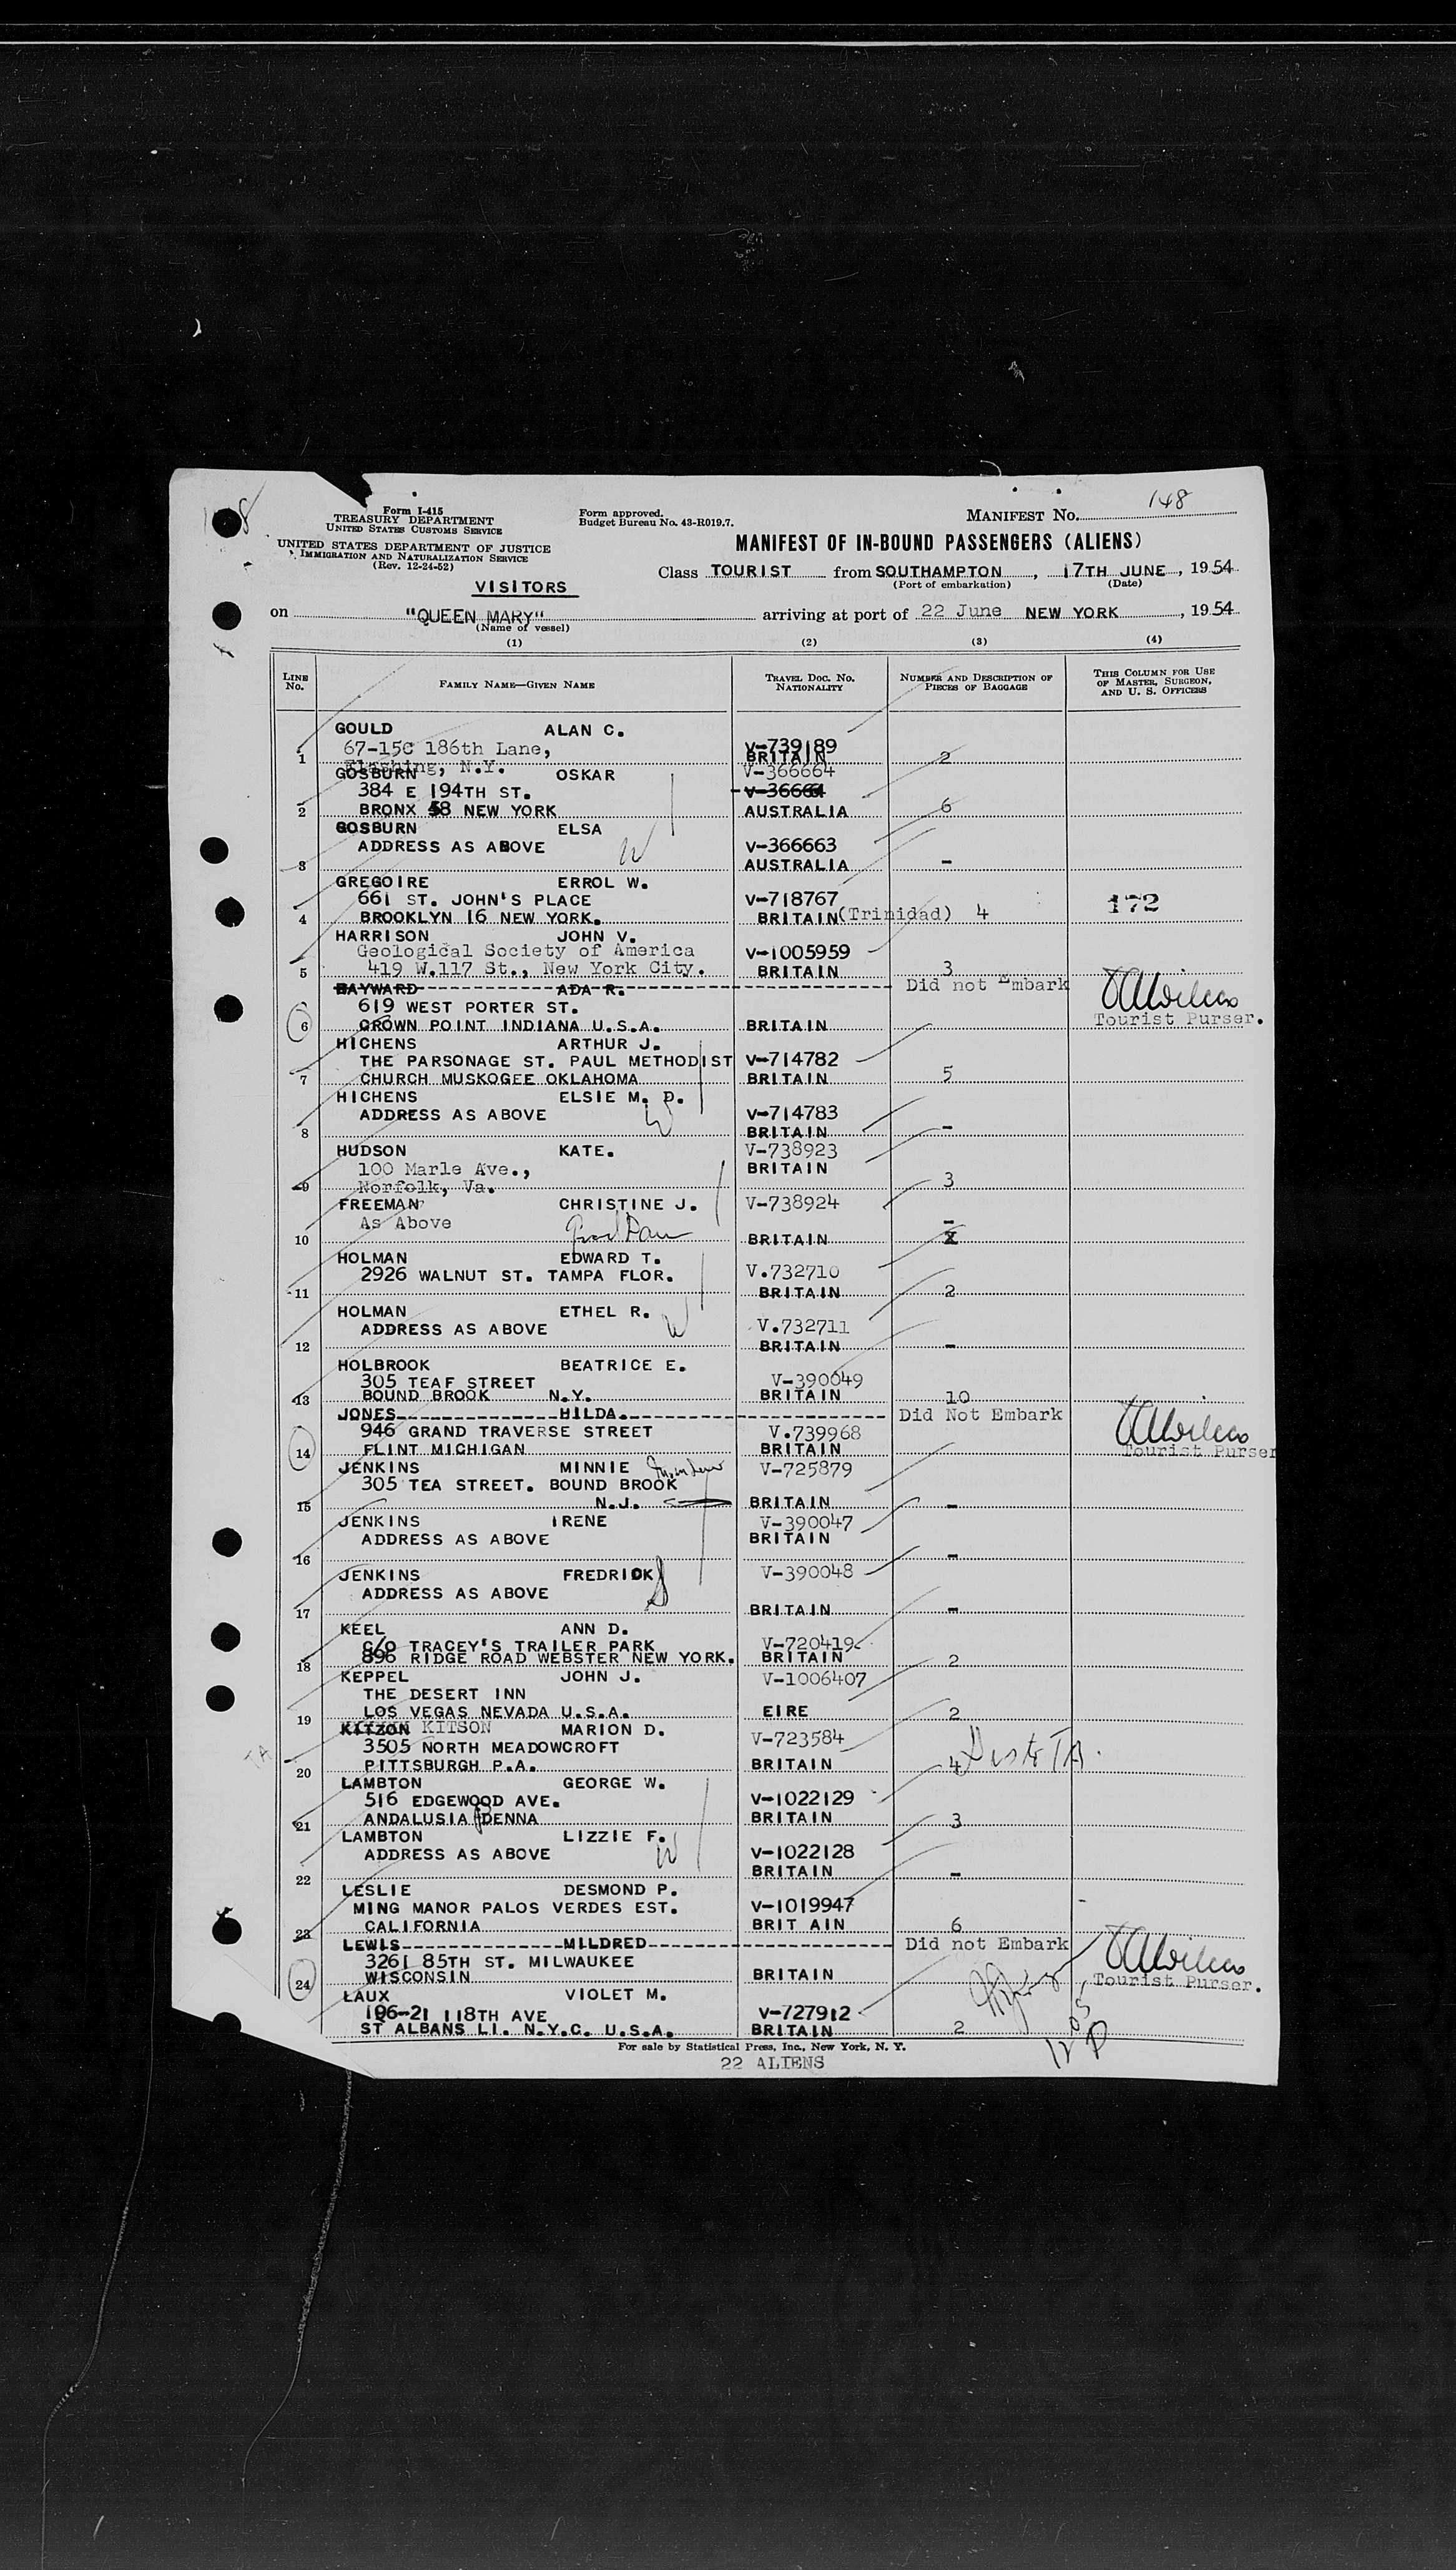 148
Form I-415
TREASURY DEPARTMENT
UNITED STATES CUSTOMS SERVICE
UNITED STATES DEPARTMENT OF JUSTICE
IMMIGRATION AND NATURALIZATION SERVICE
(Rev. 12-24-52)
Form approved.
Budget Bureau No. 43-R019.7.
MANIFEST No.
MANIFEST OF IN-BOUND PASSENGERS (ALIENS)
VISITORS
Class TOURIST from SOUTHAMPTON, 17TH JUNE, 1954
(Port of embarkation) (Date)
on "QUEEN MARY" arriving at port of 22 June NEW YORK, 1954
(Name of vessel)
(1) (2) (3) (4)
LINE No. FAMILY NAME—GIVEN NAME TRAVEL DOC. No. NATIONALITY NUMBER AND DESCRIPTION OF PIECES OF BAGGAGE THIS COLUMN FOR USE OF MASTER, SURGEON, AND U. S. OFFICERS
GOULD ALAN C.
67-15C 186th Lane, V-739189
1 Flushing, N.Y. BRITAIN 2
GOSBURN OSKAR V-366664
384 E 194TH ST. V-36664
2 BRONX 58 NEW YORK AUSTRALIA 6
GOSBURN ELSA
ADDRESS AS ABOVE W V-366663
3 AUSTRALIA -
GREGOIRE ERROL W.
661 ST. JOHN'S PLACE V-718767 172
4 BROOKLYN 16 NEW YORK. BRITAIN (Trinidad) 4
HARRISON JOHN V.
Geological Society of America V-1005959
5 419 W.117 St., New York City. BRITAIN 3
BAYWARD ADA R. Did not Embark
619 WEST PORTER ST.
6 CROWN POINT INDIANA U.S.A. BRITAIN Tourist Purser.
HICHENS ARTHUR J.
THE PARSONAGE ST. PAUL METHODIST V-714782
7 CHURCH MUSKOGEE OKLAHOMA BRITAIN 5
HICHENS ELSIE M. D.
ADDRESS AS ABOVE W V-714783
8 BRITAIN -
HUDSON KATE. V-738923
100 Marle Ave., BRITAIN
9 Norfolk, Va. 3
FREEMAN CHRISTINE J. V-738924
As Above -
10 BRITAIN X
HOLMAN EDWARD T.
2926 WALNUT ST. TAMPA FLOR. V.732710
11 BRITAIN 2
HOLMAN ETHEL R.
ADDRESS AS ABOVE W V.732711
12 BRITAIN -
HOLBROOK BEATRICE E.
305 TEAF STREET V-390049
13 BOUND BROOK N.Y. BRITAIN 10
JONES HILDA. Did Not Embark
946 GRAND TRAVERSE STREET V.739968
14 FLINT MICHIGAN BRITAIN Tourist Purser
JENKINS MINNIE V-725879
305 TEA STREET. BOUND BROOK
15 N.J. BRITAIN -
JENKINS IRENE V-390047
ADDRESS AS ABOVE BRITAIN
16 -
JENKINS FREDRICK V-390048
ADDRESS AS ABOVE
17 BRITAIN -
KEEL ANN D.
C/O TRACEY'S TRAILER PARK V-720419
18 896 RIDGE ROAD WEBSTER NEW YORK. BRITAIN 2
KEPPEL JOHN J. V-1006407
THE DESERT INN
19 LOS VEGAS NEVADA U.S.A. EIRE 2
KITZON KITSON MARION D. V-723584
TA 3505 NORTH MEADOWCROFT
20 PITTSBURGH P.A. BRITAIN 4
LAMBTON GEORGE W.
516 EDGEWOOD AVE. V-1022129
21 ANDALUSIA PENNA BRITAIN 3
LAMBTON LIZZIE F.
ADDRESS AS ABOVE W V-1022128
22 BRITAIN -
LESLIE DESMOND P.
MING MANOR PALOS VERDES EST. V-1019947
23 CALIFORNIA BRIT AIN 6
LEWIS MILDRED Did not Embark
3261 85TH ST. MILWAUKEE
24 WISCONSIN BRITAIN Tourist Purser.
LAUX VIOLET M.
196-21 118TH AVE V-727912
ST ALBANS LI. N.Y.C. U.S.A. BRITAIN 2
For sale by Statistical Press, Inc., New York, N. Y.
22 ALIENS